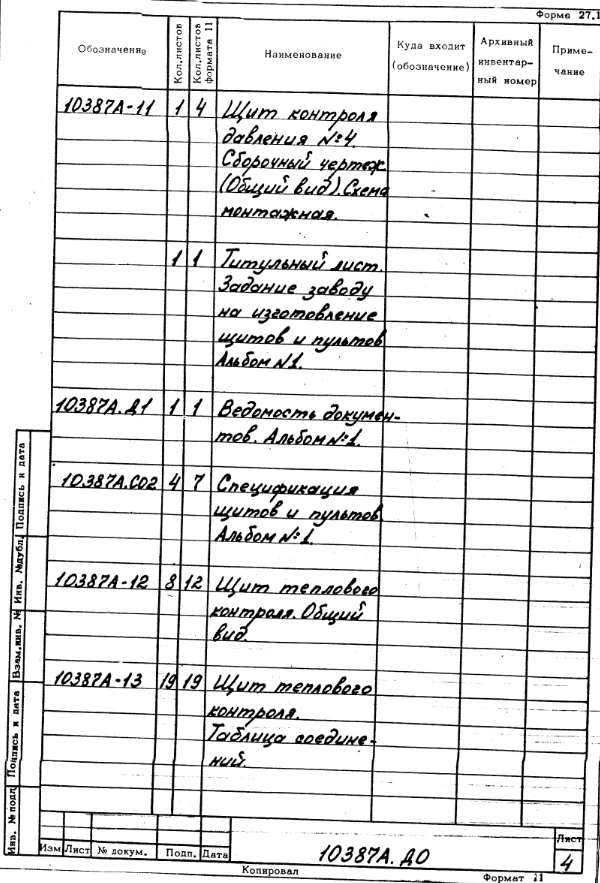 Форма 27.1
Обозначение
Кол.листов
Кол.листов формата 11
Наименование
Куда входит (обозначение)
Архивный инвентарный номер
Примечание
10387А-11 1 4 Щит контроля
давления №4.
Сборочный чертеж
(Общий вид). Схема
монтажная.
1 1 Титульный лист.
Задание заводу
на изготовление
щитов и пультов
Альбом №1.
10387А.Д1 1 1 Ведомость докумен-
тов. Альбом №1.
10387А.СО2 4 7 Спецификация
щитов и пультов
Альбом №1.
10387А-12 8 12 Щит теплового
контроля. Общий
вид.
10387А-13 19 19 Щит теплового
контроля.
Таблица соедине-
ний.
Инв. № подл. Подпись и дата Взам.инв. № Инв. №дубл. Подпись и дата
Изм Лист № докум. Подп. Дата
10387А. ДО
Лист
4
Копировал
Формат 11